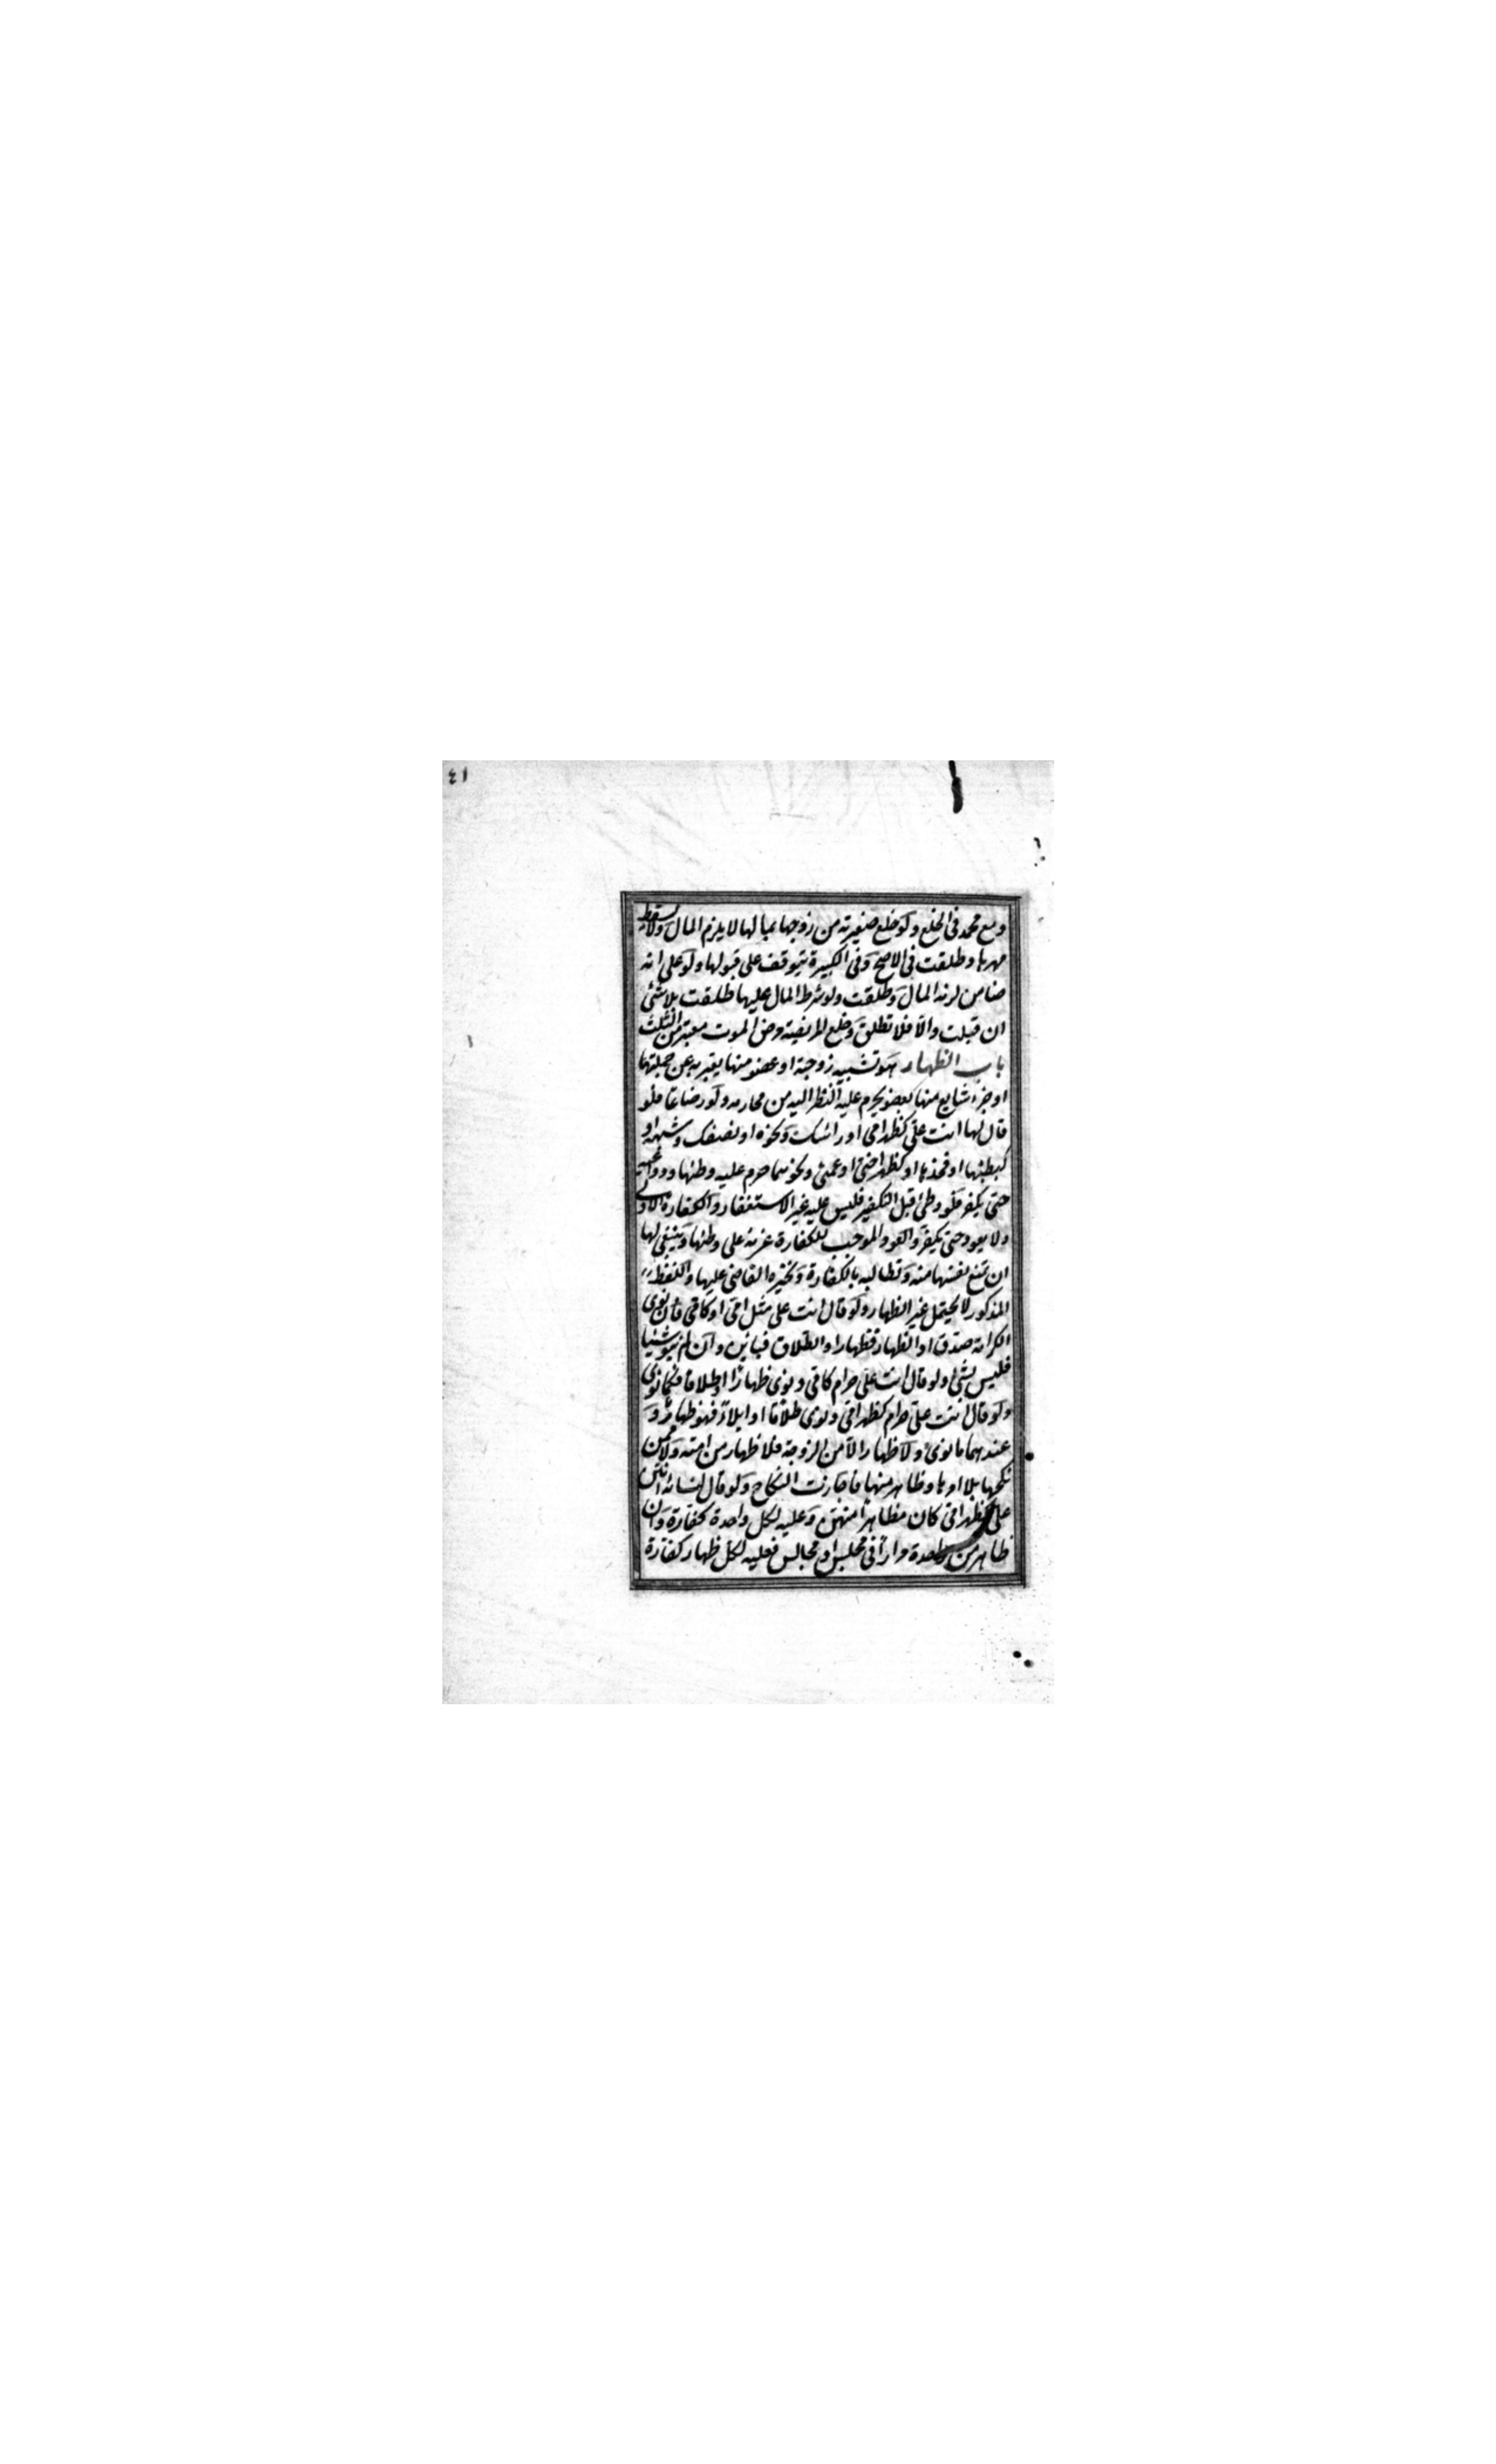 ٤١
ومع محمد في الخلع ولو خلع صغيرته من زوجها بمالها لا يلزم المال ولا يسقط
مهرها وطلقت في الاصح وفي الكبيرة يتوقف على قبولها ولو على انه
ضامن لزمه المال وطلقت ولو شرط المال عليها طلقت بلا شئ
ان قبلت والا فلا تطلق وخلع المريضة مرض الموت معتبر من الثلث
باب الظهار هو تشبيه زوجته او عضو منها يعبر به عن جملتها
او جزء شايع منها بعضو يحرم عليه النظر اليه من محارمه ولو رضاعا فلو
قال لها انت علي كظهر امي او راسك ونحوه او نصفك وشبهه او
كبطنها او فخذها او كظهر اختي او عمتي ونحوهما حرم عليه وطئها ودواعيه
حتى يكفر فلو وطئ قبل التكفير فليس عليه غير الاستغفار والكفارة الاولى
ولا يعود حتى يكفر والعود الموجب للكفارة عزمه على وطئها وينبغي لها
ان تمنع نفسها منه وتطالبه بالكفارة ويجبره القاضي عليها واللفظ
المذكور لا يحتمل غير الظهار ولو قال انت علي مثل امي او كامي فان نوى
الكرامة صدق او الظهار فظهار او الطلاق فبائن وان لم ينو شيئا
فليس بشئ ولو قال انت علي حرام كامي ونوى ظهارا او طلاقا فكما نوى
ولو قال انت علي حرام كظهر امي ونوى طلاقا او ايلاء فهو ظهار و
عندهما ما نوى ولا ظهار الا من الزوجة فلا ظهار من امته ولا ممن
نكحها بلا امرها وظاهر منها فاجازت النكاح ولو قال لنسائه انتن
علي كظهر امي كان مظاهرا منهن وعليه لكل واحدة كفارة وان
ظاهر من واحدة مرارا في مجلس او مجالس فعليه لكل ظهار كفارة